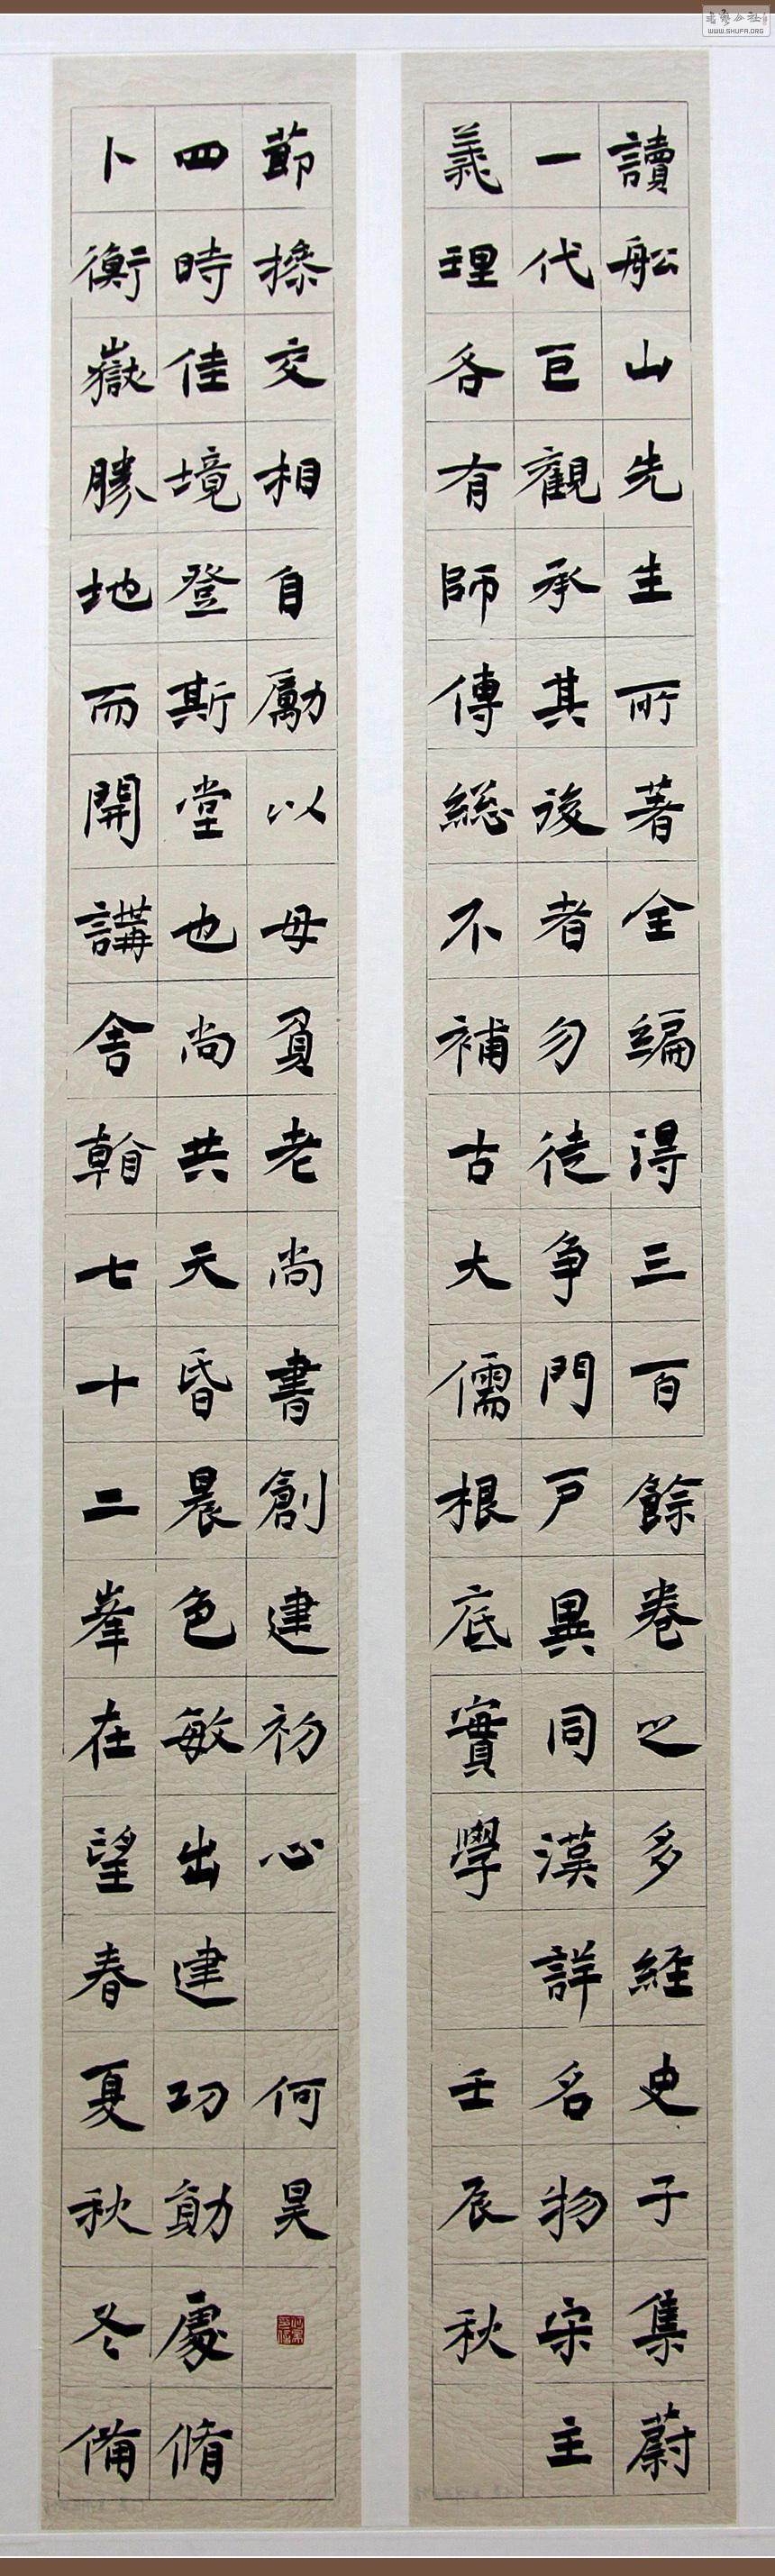 讀舩山先生所著全編得三百餘卷之多經史子集蔚
一代巨觀承其後者勿徒爭門戶異同漢詳名物宋主
義理各有師傳總不補古大儒根底實學
壬辰秋
卜衡嶽勝地而開講舍七十二峯在望春夏秋冬備
四時佳境登斯堂也尚共天昏晨色敏出建功勛處脩
節操交相自勵以毋負老尚書創建初心
何昊
WWW.SHUFA.ORG